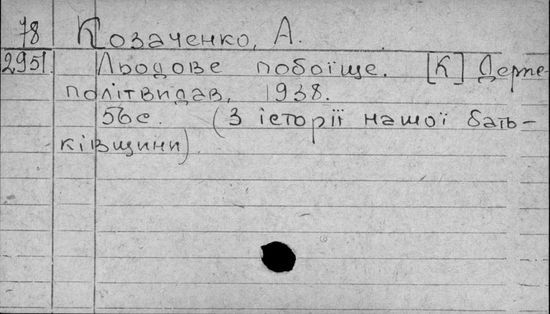 78 Козаченко, А.
2951. Льодове побоїще. [К] Держ-
політвидав, 1938.
56с. (З історії нашої бать-
ківщини).